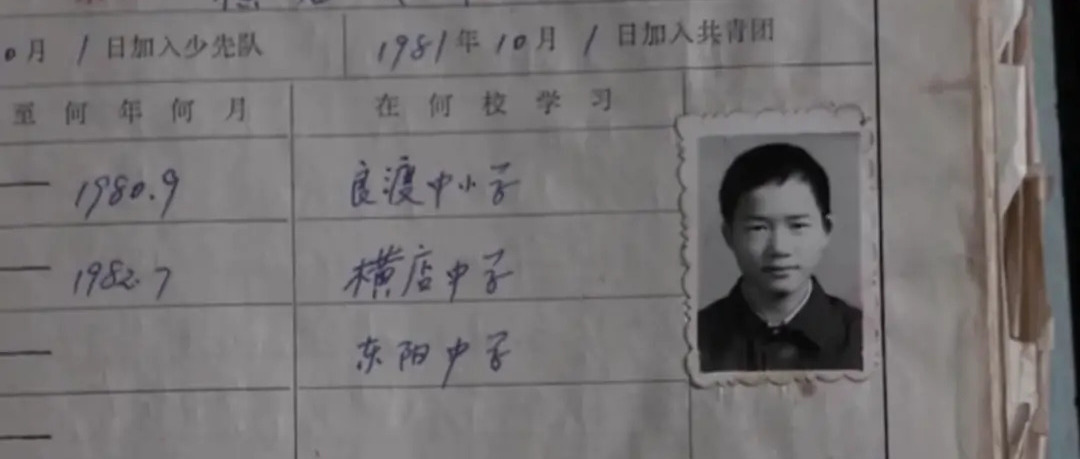 月 1 日加入少先队 1981年 10月 1 日加入共青团
至何年何月 在何校学习
1980.9 良渡中小学
1982.7 横店中学
东阳中学